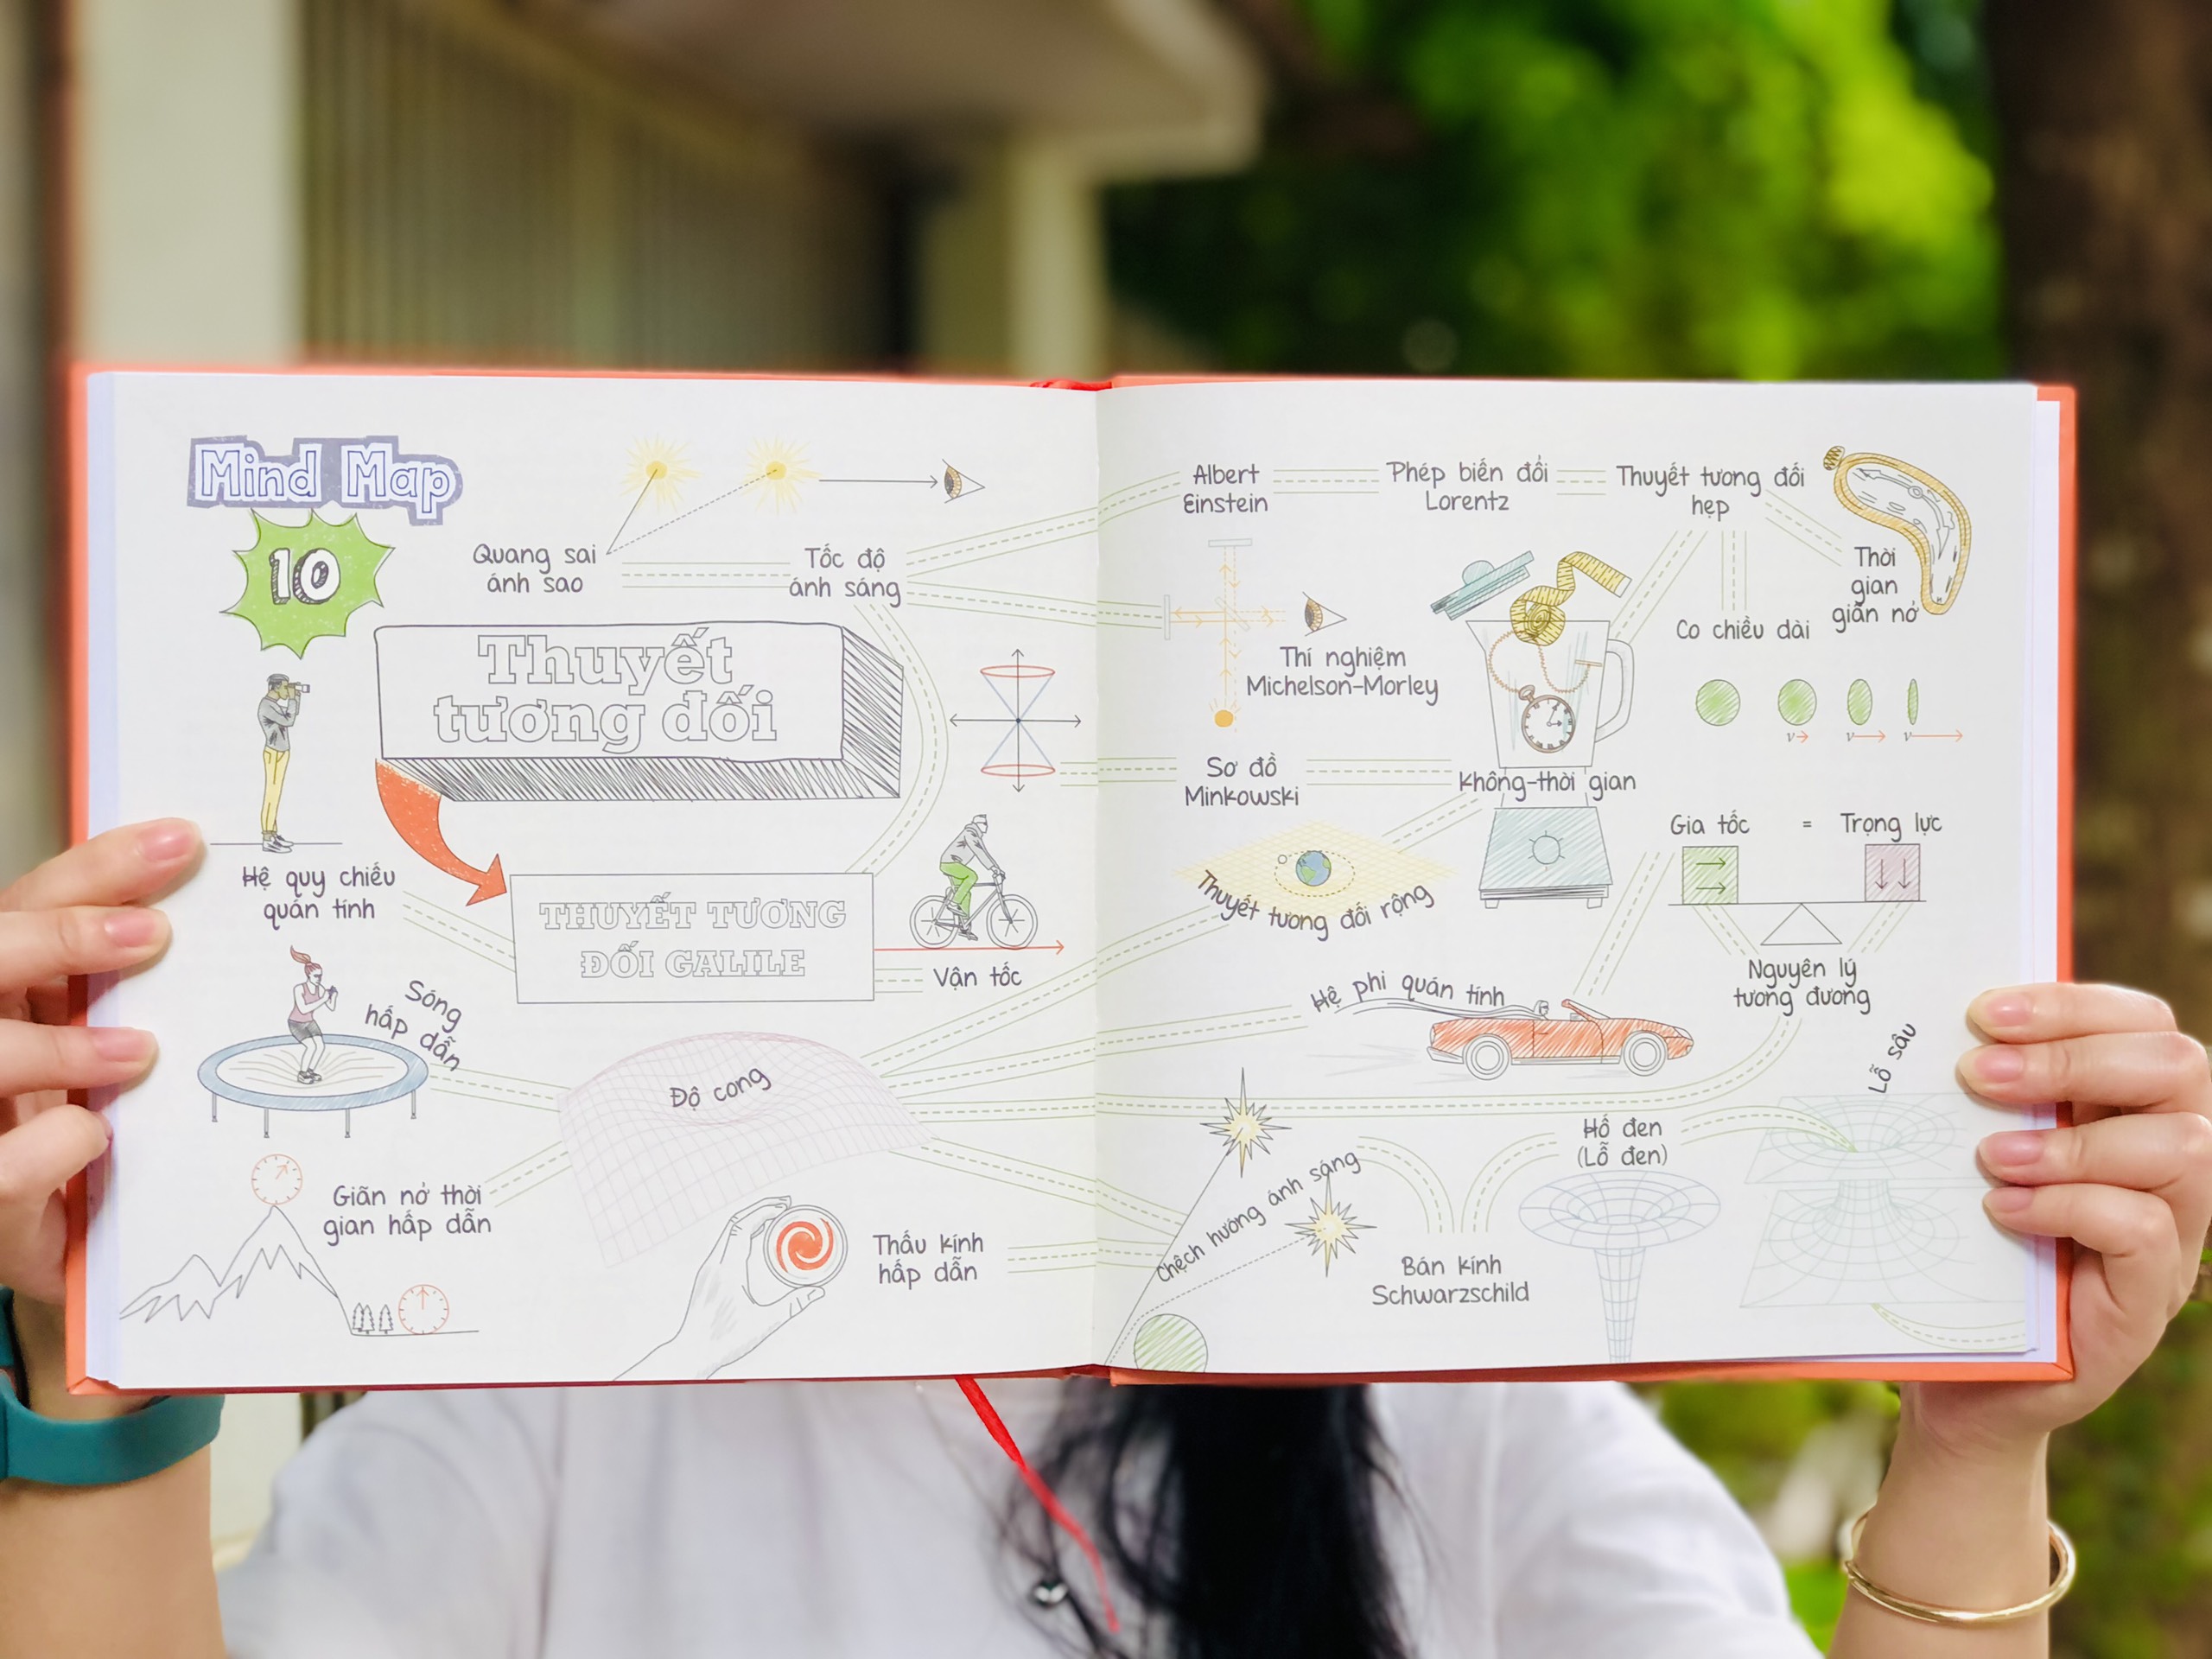 Mind Map
10
Quang sai
ánh sao
Tốc độ
ánh sáng
Thuyết
tương đối
Hệ quy chiếu
quán tính
THUYẾT TƯƠNG
ĐỐI GALILE
Vận tốc
Sóng
hấp dẫn
Độ cong
Giãn nở thời
gian hấp dẫn
Thấu kính
hấp dẫn
Albert
Einstein
Phép biến đổi
Lorentz
Thuyết tương đối
hẹp
Thời
gian
giãn nở
Co chiều dài
Thí nghiệm
Michelson-Morley
v
v
v
Sơ đồ
Minkowski
Không-thời gian
Gia tốc = Trọng lực
Thuyết tương đối rộng
Nguyên lý
tương đương
Hệ phi quán tính
Lỗ sâu
Hố đen
(Lỗ đen)
Chệch hướng ánh sáng
Bán kính
Schwarzschild